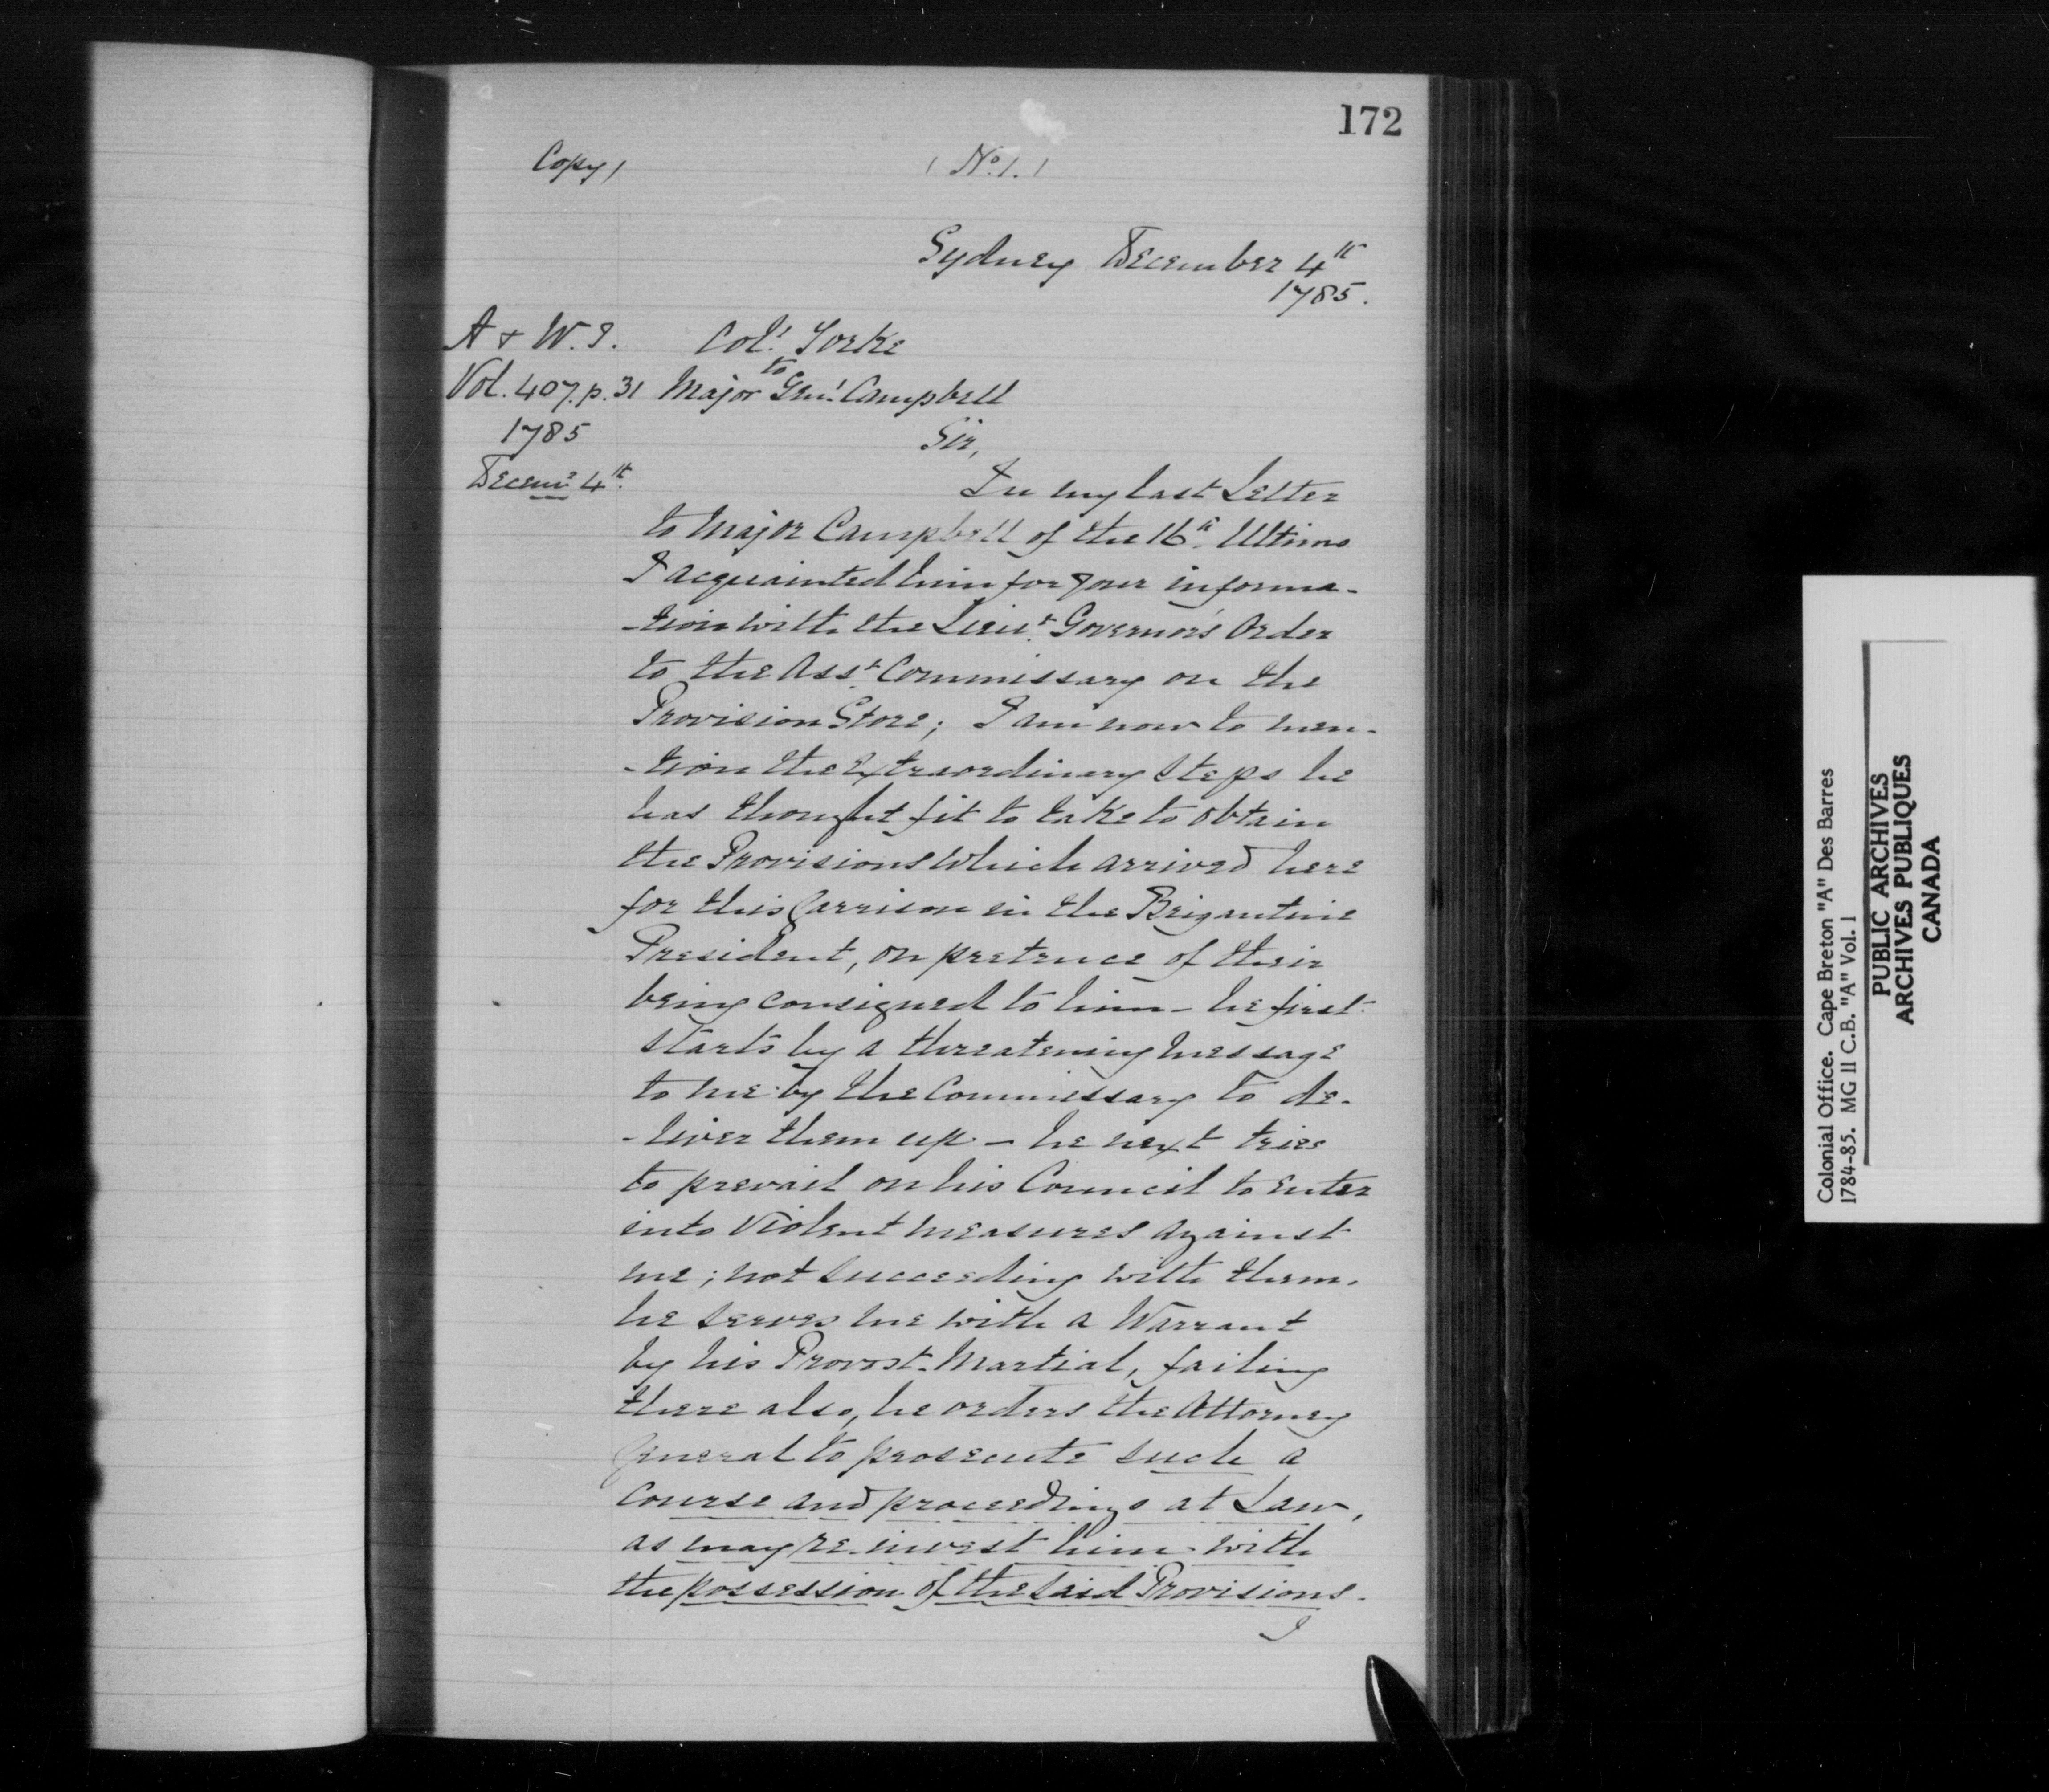 172
Copy/
/ No. 1. /
Sydney December 4th
1785.
A & W. I.
Vol. 407. p. 31
1785
Decemr 4th.
Coll. Yorke
to
Major Genl. Campbell
Sir,
In my last Letter
to Major Campbell of the 16th. Ultimo
I acquainted him for your informa-
-tion with the Lieut. Governor's Order
to the Asst. Commissary on the
Provision Store; I am now to men-
-tion the extraordinary steps he
has thought fit to take to obtain
the Provisions which arrived here
for this Garrison in the Brigantine
President, on pretence of their
being consigned to him - he first
starts by a threatening message
to me by the Commissary to de-
-liver them up - he next tries
to prevail on his Council to enter
into violent measures against
me; not succeeding with them,
he serves me with a Warrant
by his Provost-Martial, failing
there also, he orders the Attorney
General to prosecute such a
course and proceedings at Law,
as may re-invest him with
the possession of the said Provisions.
I
Colonial Office. Cape Breton "A" Des Barres
1784-85. MG II C.B. "A" Vol. I
PUBLIC ARCHIVES
ARCHIVES PUBLIQUES
CANADA